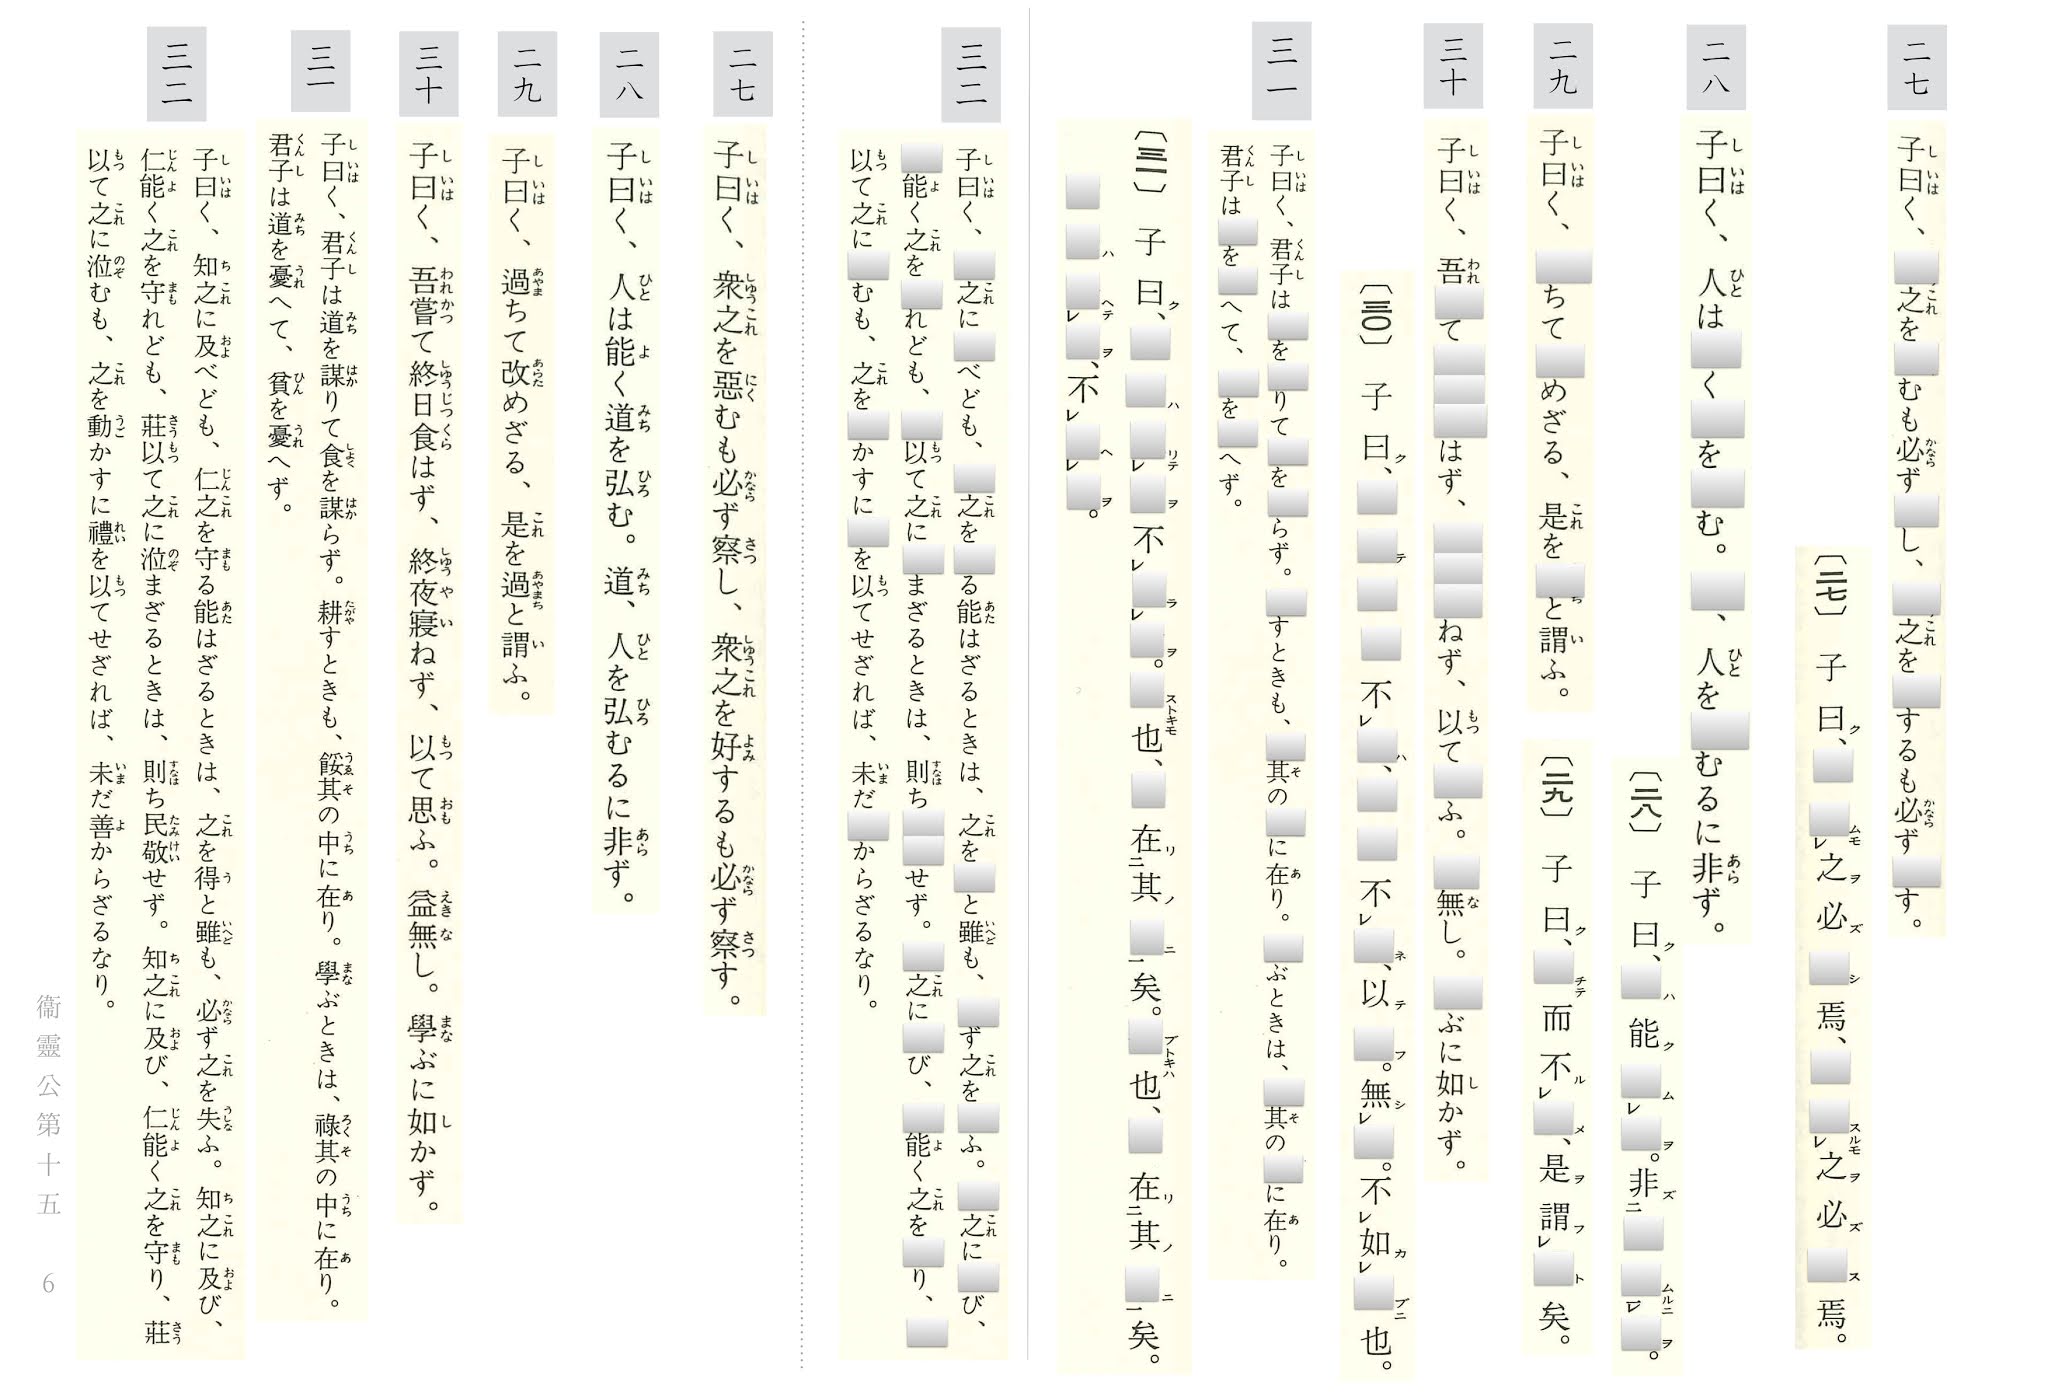 二七
子曰く、□之を□むも必ず□し、□之を□するも必ず□す。
〔二七〕子曰、□□之必□焉、□□之必□焉。
二八
子曰く、人は□く□を□む。□、人を□むるに非ず。
〔二八〕子曰、□能□□。非□□□。
二九
子曰く、□ちて□めざる、是を□と謂ふ。
〔二九〕子曰、□而不□、是謂□矣。
三十
子曰く、吾□て□□□はず、□□□ねず、以て□ふ。□無し。□ぶに如かず。
〔三〇〕子曰、□□□□不□、□□不□、以□。無□。不如□也。
三一
子曰く、君子は□を□りて□を□らず。□すときも、□其の□に在り。□ぶときは、□其の□に在り。
君子は□を□へて、□を□へず。
〔三一〕子曰、□□□□不□□。□也、□在其□矣。□也、□在其□矣。
□□□□、不□□。
三二
子曰く、□之に□べども、□之を□る能はざるときは、之を□と雖も、□ず之を□ふ。□之に□び、
□能く之を□れども、□以て之に□まざるときは、則ち□□せず。□之に□び、□能く之を□り、□
以て之に□むも、之を□かすに□を以てせざれば、未だ□からざるなり。
二七
子曰く、衆之を惡むも必ず察し、衆之を好するも必ず察す。
二八
子曰く、人は能く道を弘む。道、人を弘むるに非ず。
二九
子曰く、過ちて改めざる、是を過と謂ふ。
三十
子曰く、吾嘗て終日食はず、終夜寢ねず、以て思ふ。益無し。學ぶに如かず。
三一
子曰く、君子は道を謀りて食を謀らず。耕すときも、餒其の中に在り。學ぶときは、祿其の中に在り。
君子は道を憂へて、貧を憂へず。
三二
子曰く、知之に及べども、仁之を守る能はざるときは、之を得と雖も、必ず之を失ふ。知之に及び、
仁能く之を守れども、莊以て之に涖まざるときは、則ち民敬せず。知之に及び、仁能く之を守り、莊
以て之に涖むも、之を動かすに禮を以てせざれば、未だ善からざるなり。
衞靈公第十五 6